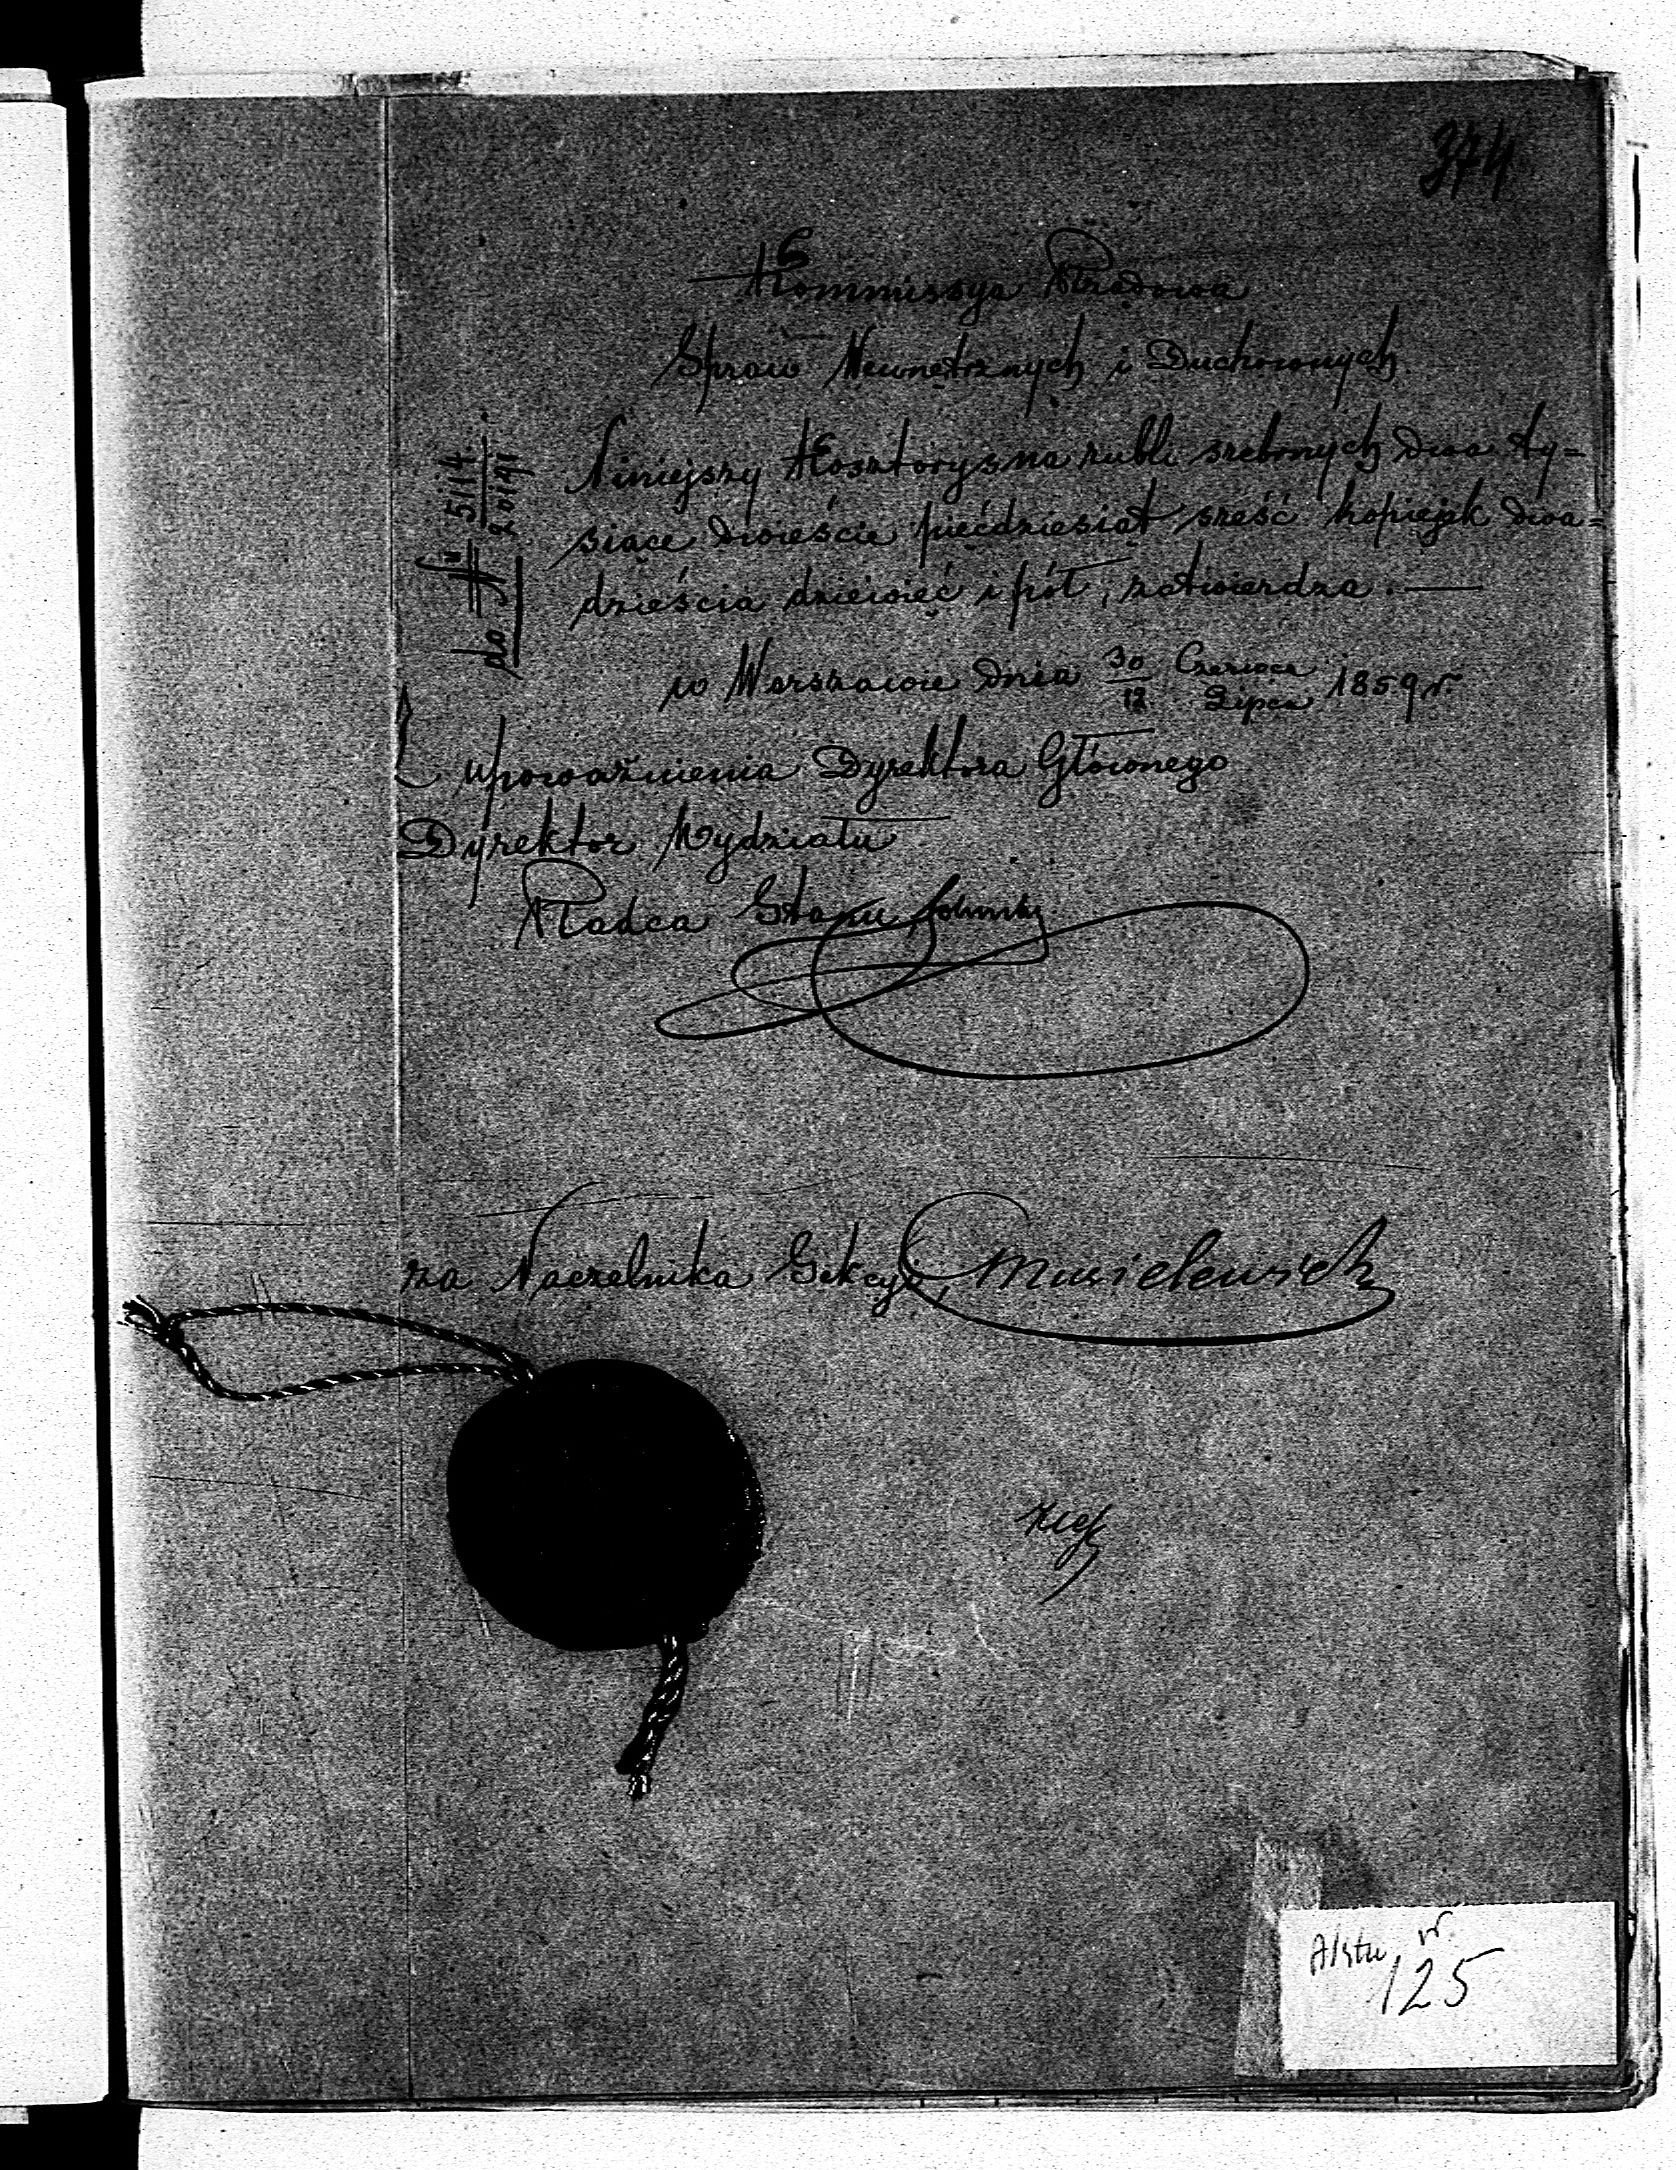 374
Kommissya Rządowa
Spraw Wewnętrznych i Duchownych
do № 5114
20141
Niniejszy Kosztorys na rubli srebrnych dwa ty=
siące dwieście pięćdziesiąt sześć kopiejek dwa=
dzieścia dziewięć i pół, zatwierdza. —
w Warszawie dnia 30 Czerwca
12 Lipca 1859 r.
Z upoważnienia Dyrektora Głównego
Dyrektor Wydziału
Radca Stanu
za Naczelnika Sekcyi
Aktu nr
125